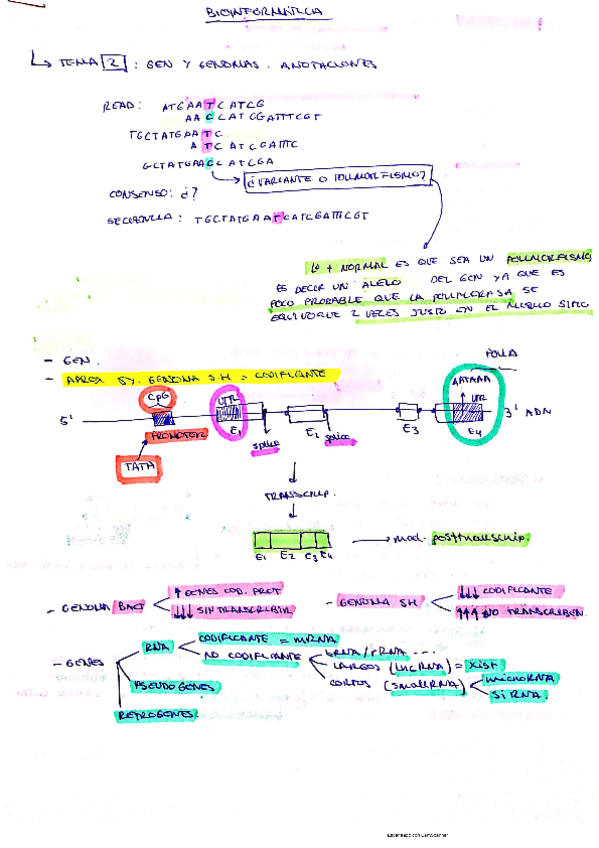 BIOINFORMÁTICA
TEMA 2 : GEN Y GENOMAS. ANOTACIONES
READ: ATGAATCATCG
AACCATCGATTTCGT
TGCTATGAATC
ATCATCGATTTC
GCTATGAACCATCGA
¿VARIANTE O POLIMORFISMO?
CONSENSO: ¿?
SECUENCIA: TGCTATGAATCATCGATTTCGT
LO + NORMAL ES QUE SEA UN POLIMORFISMO,
ES DECIR UN ALELO DEL GEN YA QUE ES
POCO PROBABLE QUE LA POLIMERASA SE
EQUIVOQUE 2 VECES JUSTO EN EL MISMO SITIO
- GEN.
- APROX 5%. GENOMA SH = CODIFICANTE
POLIA
CpG UTR AATAAA UTR
5' 3' ADN
PROMOTER E1 splice E2 splice E3 E4
TATA
TRANSCRIP.
mod. posttranscrip.
E1 E2 E3 E4
- GENOMA BACT ↑ GENES COD. PROT
↓↓↓ SIN TRANSCRIBIR
- GENOMA SH ↓↓↓ CODIFICANTE
↑↑↑ NO TRANSCRIBEN
- GENES
RNA CODIFICANTE = mRNA
NO CODIFICANTE tRNA/rRNA ...
LARGOS (LNCRNA) = Xist
CORTOS (SmallRNA) microRNA
SiRNA
PSEUDOGENES
RETROGENES
Escaneado con CamScanner